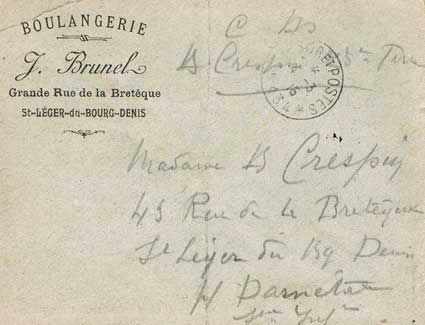 BOULANGERIE
J. Brunel
Grande Rue de la Bretèque
St-LÉGER-du-BOURG-DENIS
C
Crespin
POSTES
Madame Crespin
43 Rue de la Bretèque
St Léger du Bg Denis
p/ Darnétal